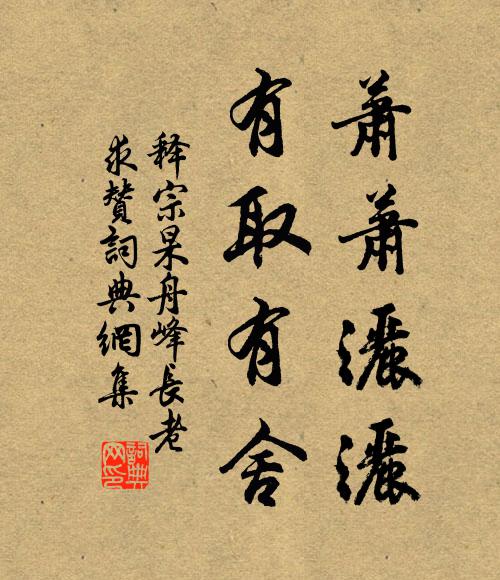 蕭蕭灑灑
有取有舍
释宗杲舟峰長老
求贊詞典網集
詞典
网印